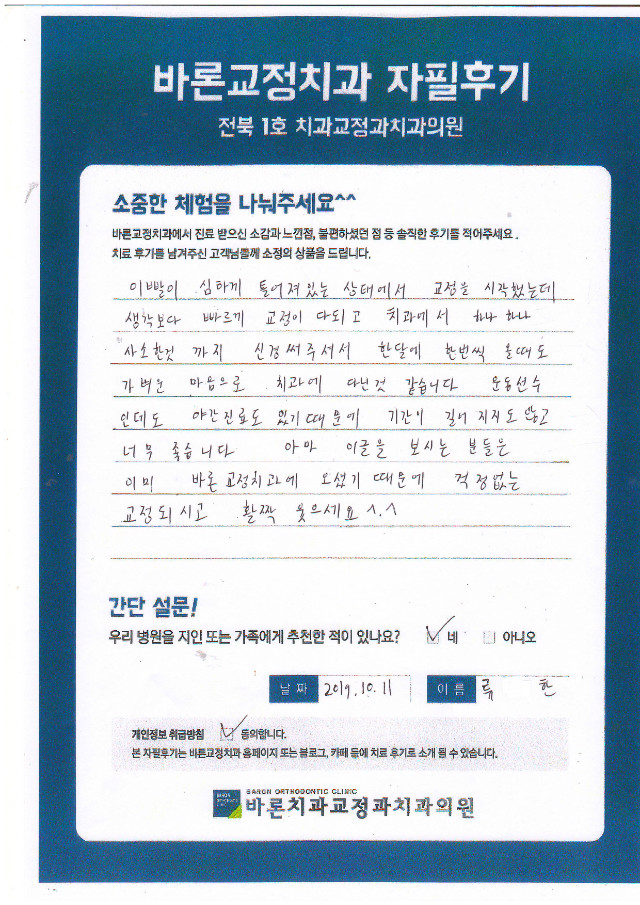 바론교정치과 자필후기
전북 1호 치과교정과치과의원
소중한 체험을 나눠주세요^^
바른교정치과에서 진료 받으신 소감과 느낀점, 불편하셨던 점 등 솔직한 후기를 적어주세요.
치료 후기를 남겨주신 고객님들께 소정의 상품을 드립니다.
이빨이 심하게 틀어져있는 상태에서 교정을 시작했는데
생각보다 빠르게 교정이 다되고 치과에서 하나 하나
사소한것 까지 신경써주셔서 한달에 한번씩 올때도
가벼운 마음으로 치과에 다닌것 같습니다 운동선수
인데도 야간진료도 있기때문에 기간이 길어지지도 않고
너무 좋습니다 아마 이글을 보시는 분들은
이미 바론교정치과에 오셨기때문에 걱정없는
교정되시고 활짝 웃으세요 ^.^
간단 설문!
우리 병원을 지인 또는 가족에게 추천한 적이 있나요? 네 아니오
날짜 2019.10.11 이름 류 한
개인정보 취급방침 동의합니다.
본 자필후기는 바른교정치과 홈페이지 또는 블로그, 카페 등에 치료 후기로 소개 될 수 있습니다.
BARON ORTHODONTIC CLINIC
바론치과교정과치과의원